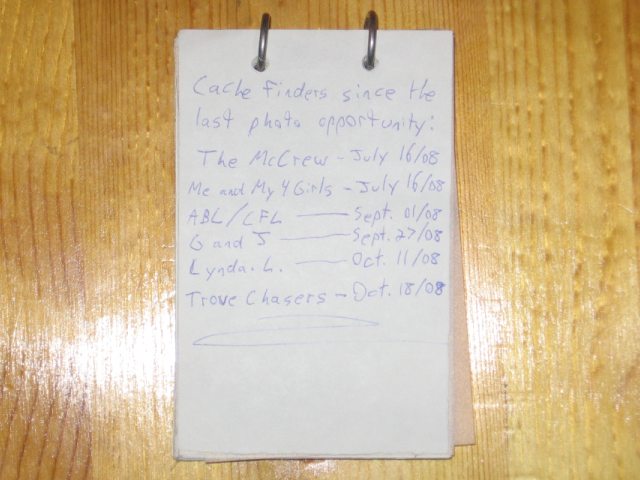 Cache Finders since the
last photo opportunity:
The McCrew - July 16/08
Me and My 4 Girls - July 16/08
ABL/CFL — Sept. 01/08
G and J — Sept. 27/08
Lynda. L. — Oct. 11/08
Trove Chasers - Oct. 18/08